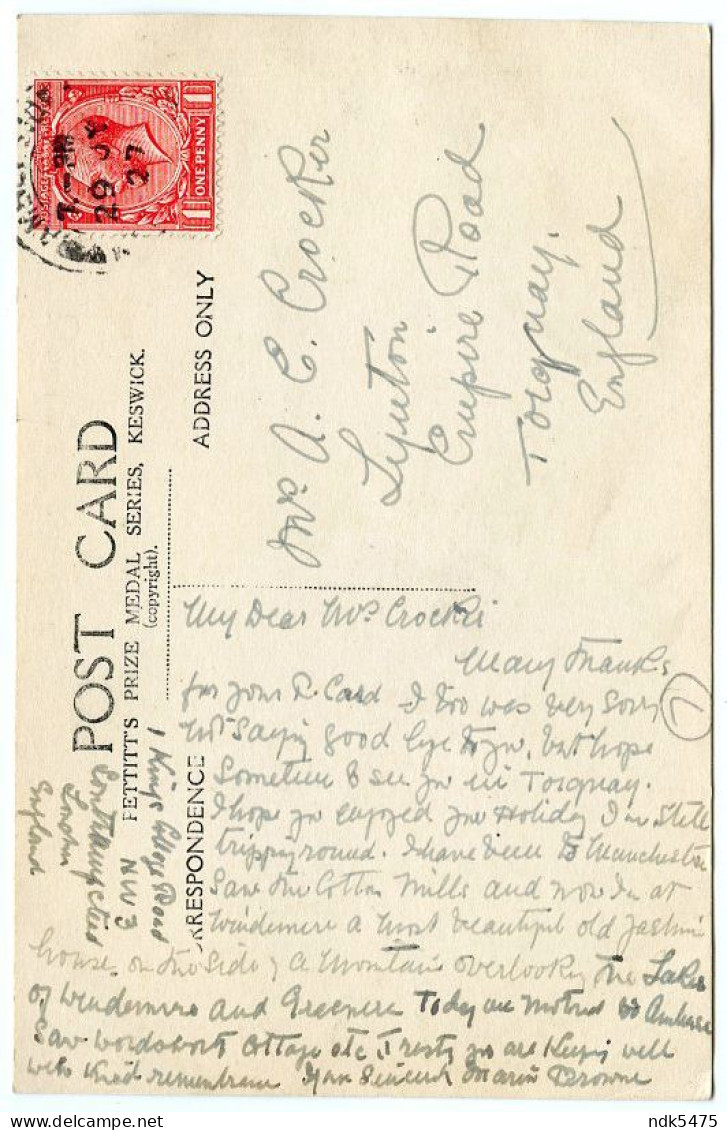 POST CARD
PETTITT'S PRIZE MEDAL SERIES, KESWICK.
(copyright).
CORRESPONDENCE
ADDRESS ONLY
ONE PENNY
7. - PM
29
27
Mrs A. C. Crocker
Lynton
Empire Road
Torquay.
England
1 Kings College Road
NW 3
South Hampstead
London
England
My Dear Mrs Crocker
Many Thanks
for your L. Card I too was very Sorry
not Saying good bye to you, but hope
Sometime to see you in Torquay.
I hope you enjoyed your Holiday I'm still
tripping round. I have been to Manchester
Saw the Cotton Mills and now I'm at
Windermere a most beautiful old
house on the side of a Mountain overlooking the Lakes
of Windermere and Today we motored to
Saw Wordsworth Cottage etc I trust you are keeping well
with kind remembrance Yours Sincerely Marie Browne
1
ndk5475